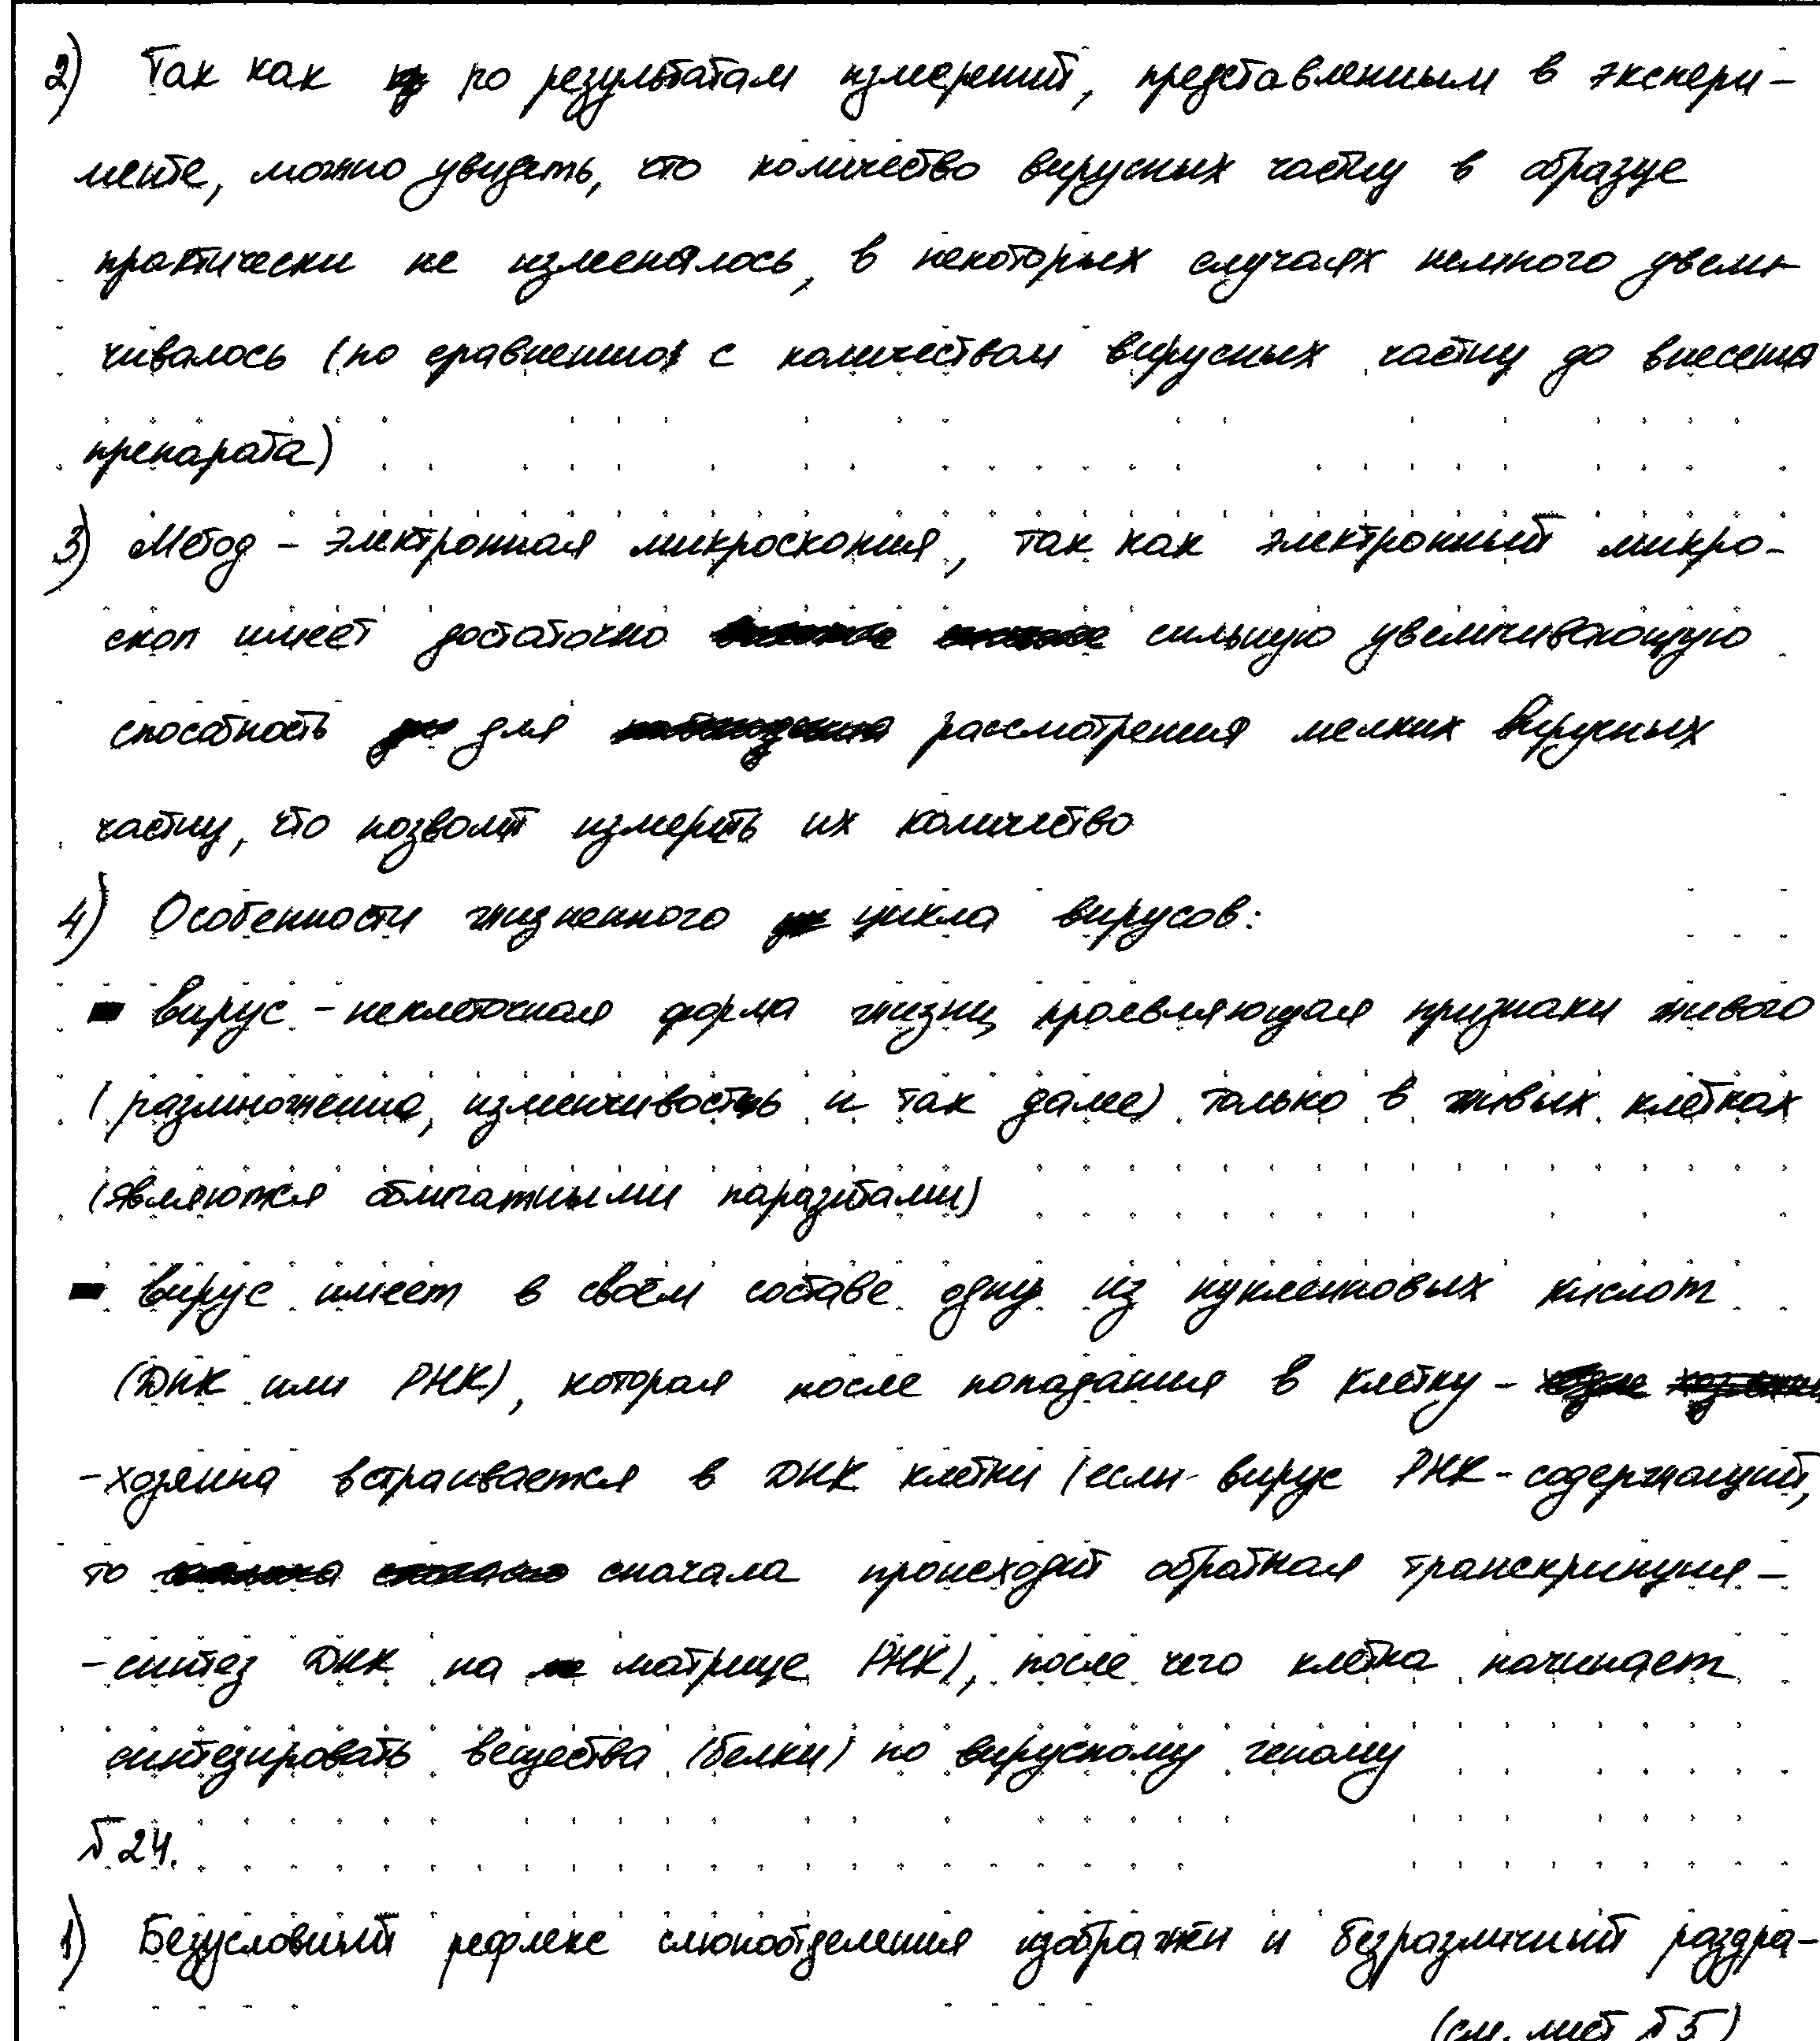 2) Так как по результатам измерений, представленным в экспери-
менте, можно увидеть, что количество вирусных частиц в образце
практически не изменялось, в некоторых случаях немного увели-
чивалось (по сравнению с количеством вирусных частиц до внесения
препарата)
3) Метод - электронная микроскопия, так как электронный микро-
скоп имеет достаточно сильную увеличивающую
способность для рассмотрения мелких вирусных
частиц, что позволит измерить их количество
4) Особенности жизненного цикла вирусов:
- вирус - неклеточная форма жизни, проявляющая признаки живого
(размножение, изменчивость и так далее) только в живых клетках
(являются облигатными паразитами)
- вирус имеет в своём составе одну из нуклеиновых кислот
(ДНК или РНК), которая после попадания в клетку-
-хозяина встраивается в ДНК клетки (если вирус РНК-содержащий,
то сначала происходит обратная транскрипция -
- синтез ДНК на матрице РНК), после чего клетка начинает
синтезировать вещества (белки) по вирусному геному
№24.
1) Безусловный рефлекс слюноотделения изображён и безразличный раздра-
(см. лист №5)